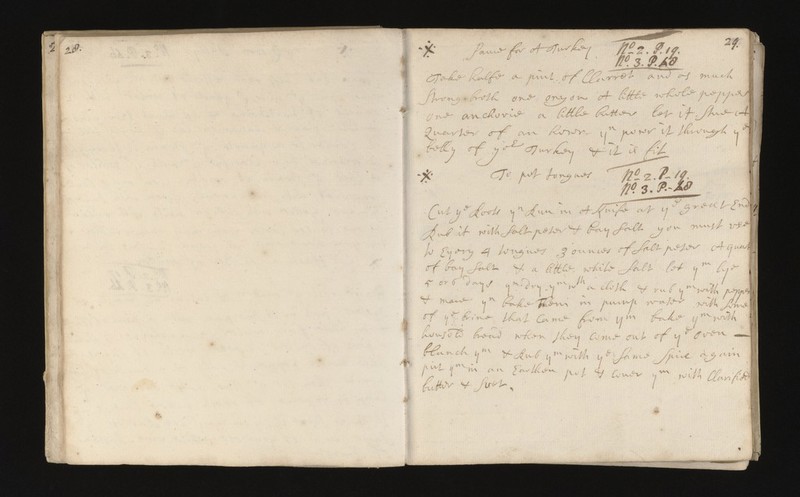 28.
29.
Sause for A Turkey No 2. P. 19.
No. 3. P. 48
Take halfe a pint of Clarret and as much
strong broth one onyon A little whole pepper
one anchovie a little butter let it stue A
Quarter of an hower yn power it through ye
belly of ye Turkey & it is fit
To pot tongues No 2. P. 19.
No. 3. P. 48
Cut ye Roots yn Run in A Knife at ye great End
Rub it with salt peter & bay salt you must use
to Every 4 tongues 3 ounces of salt peter A quart
of bay salt & a little white salt let ym lye
5 or 6 days yn dry ym with a cloth & rub ym with pepper
& mace yn bake them in pump water with some
of ye brine that Came from ym bake ym with
household bread when they Come out of ye oven
blanch ym & Rub ym with ye same spice again
put ym in an Earthen pot & Cover ym with Clarified
butter &